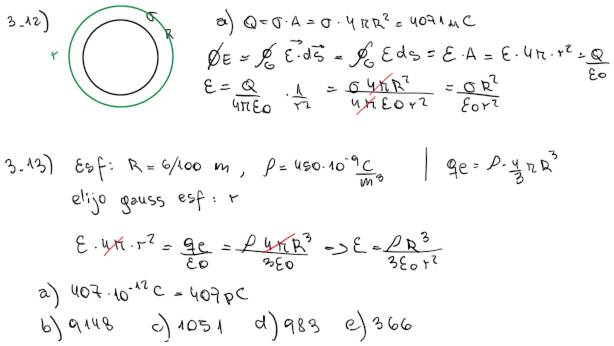 3.12) σ R r a) Q = σ·A = σ·4πR² = 4071 μC
ΦE = ∮ E·ds = ∮ E ds = E·A = E·4π·r² = Q/ε0
E = Q/4πε0 · 1/r² = σ4πR²/4πε0r² = σR²/ε0r²
3.13) Esf: R = 6/100 m, ρ = 450·10⁻⁹ C/m³ | qe = ρ·4/3πR³
elijo gauss esf: r
E·4π·r² = qe/ε0 = ρ4πR³/3ε0 → E = ρR³/3ε0r²
a) 407·10⁻¹² C = 407pC
b) 9148 c) 1051 d) 983 e) 366